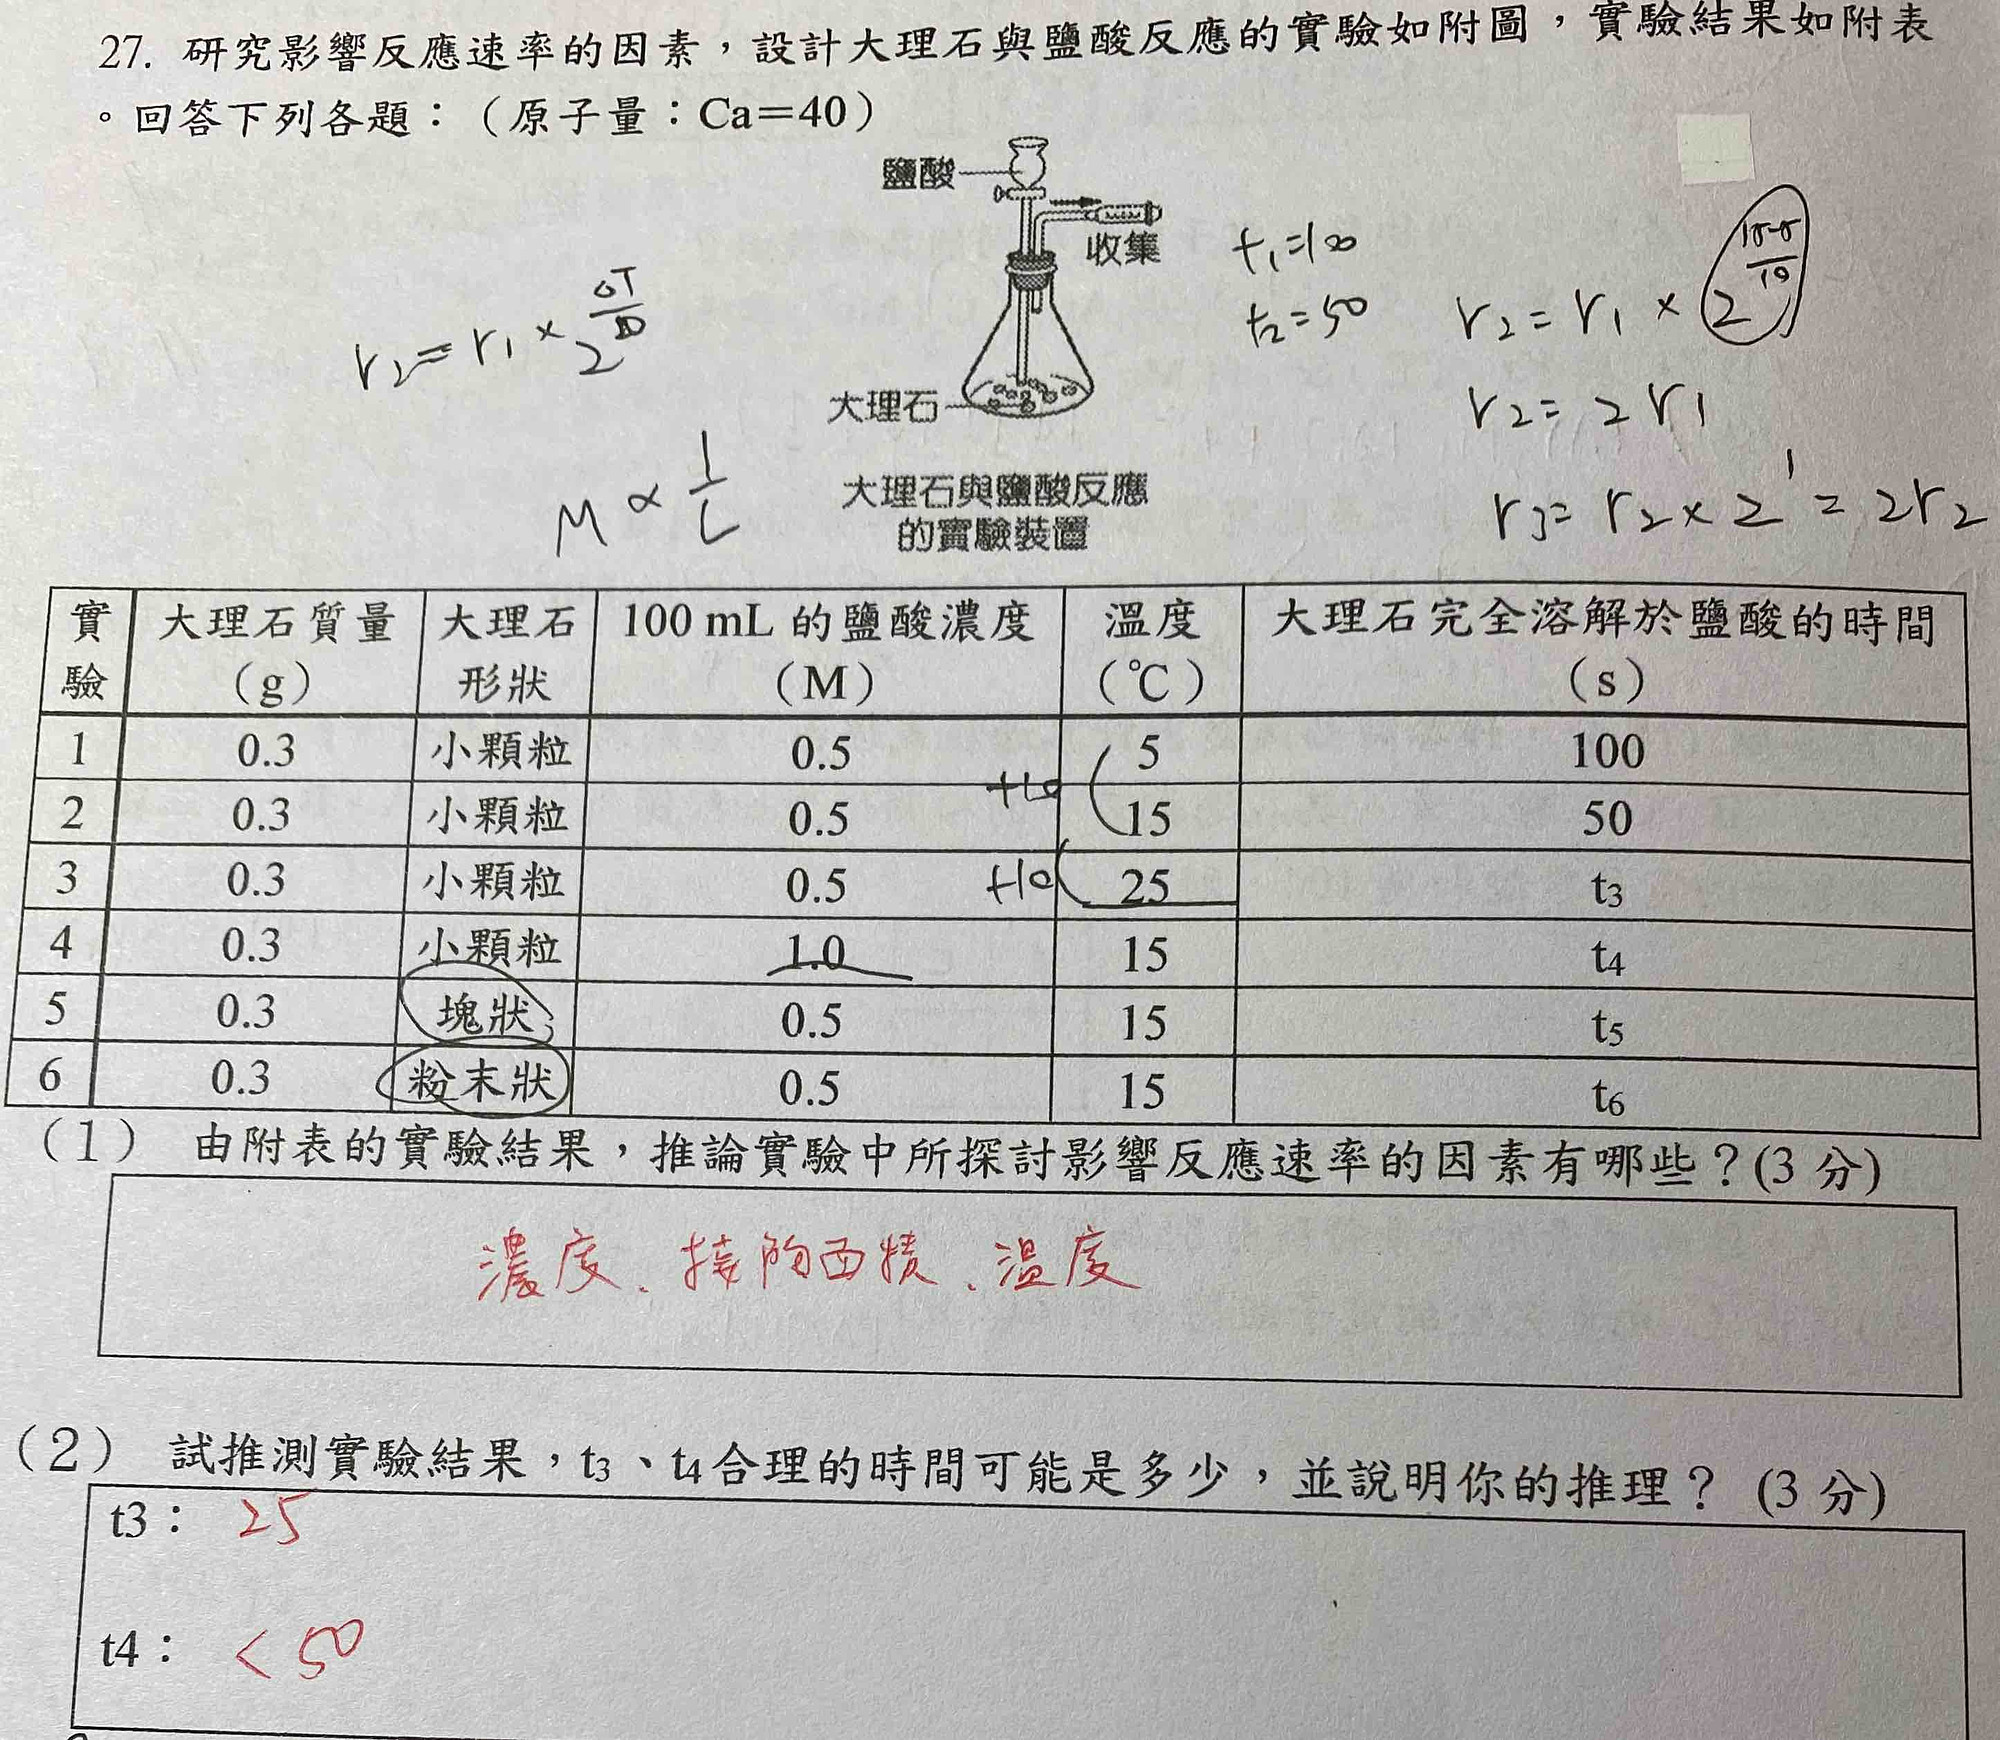 27. 研究影響反應速率的因素，設計大理石與鹽酸反應的實驗如附圖，實驗結果如附表
。回答下列各題：（原子量：Ca＝40）
鹽酸
收集
大理石
大理石與鹽酸反應
的實驗裝置
t₁=100
t₂=50
r₂=r₁×2^(ΔT/10)
r₂=r₁×2^((15-5)/10)
r₂=2r₁
r₃=r₂×2¹=2r₂
M∝1/L
實驗 大理石質量（g） 大理石形狀 100 mL 的鹽酸濃度（M） 溫度（℃） 大理石完全溶解於鹽酸的時間（s）
1 0.3 小顆粒 0.5 5 100
+10
2 0.3 小顆粒 0.5 15 50
3 0.3 小顆粒 0.5 +10 25 t3
4 0.3 小顆粒 1.0 15 t4
5 0.3 塊狀 0.5 15 t5
6 0.3 粉末狀 0.5 15 t6
（1） 由附表的實驗結果，推論實驗中所探討影響反應速率的因素有哪些？(3 分)
濃度、接觸面積、溫度
（2） 試推測實驗結果，t3、t4合理的時間可能是多少，並說明你的推理？ (3 分)
t3： 25
t4： < 50